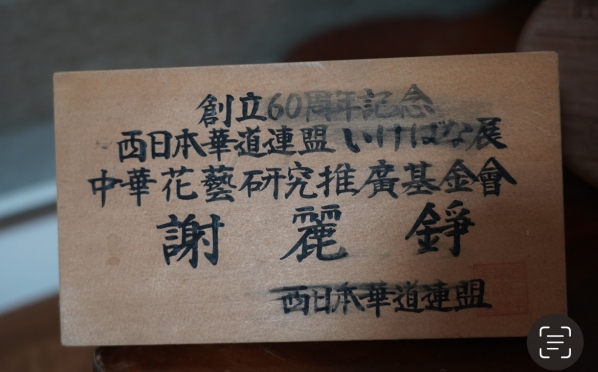 創立60周年記念
西日本華道連盟いけばな展
中華花藝研究推廣基金會
謝麗錚
西日本華道連盟